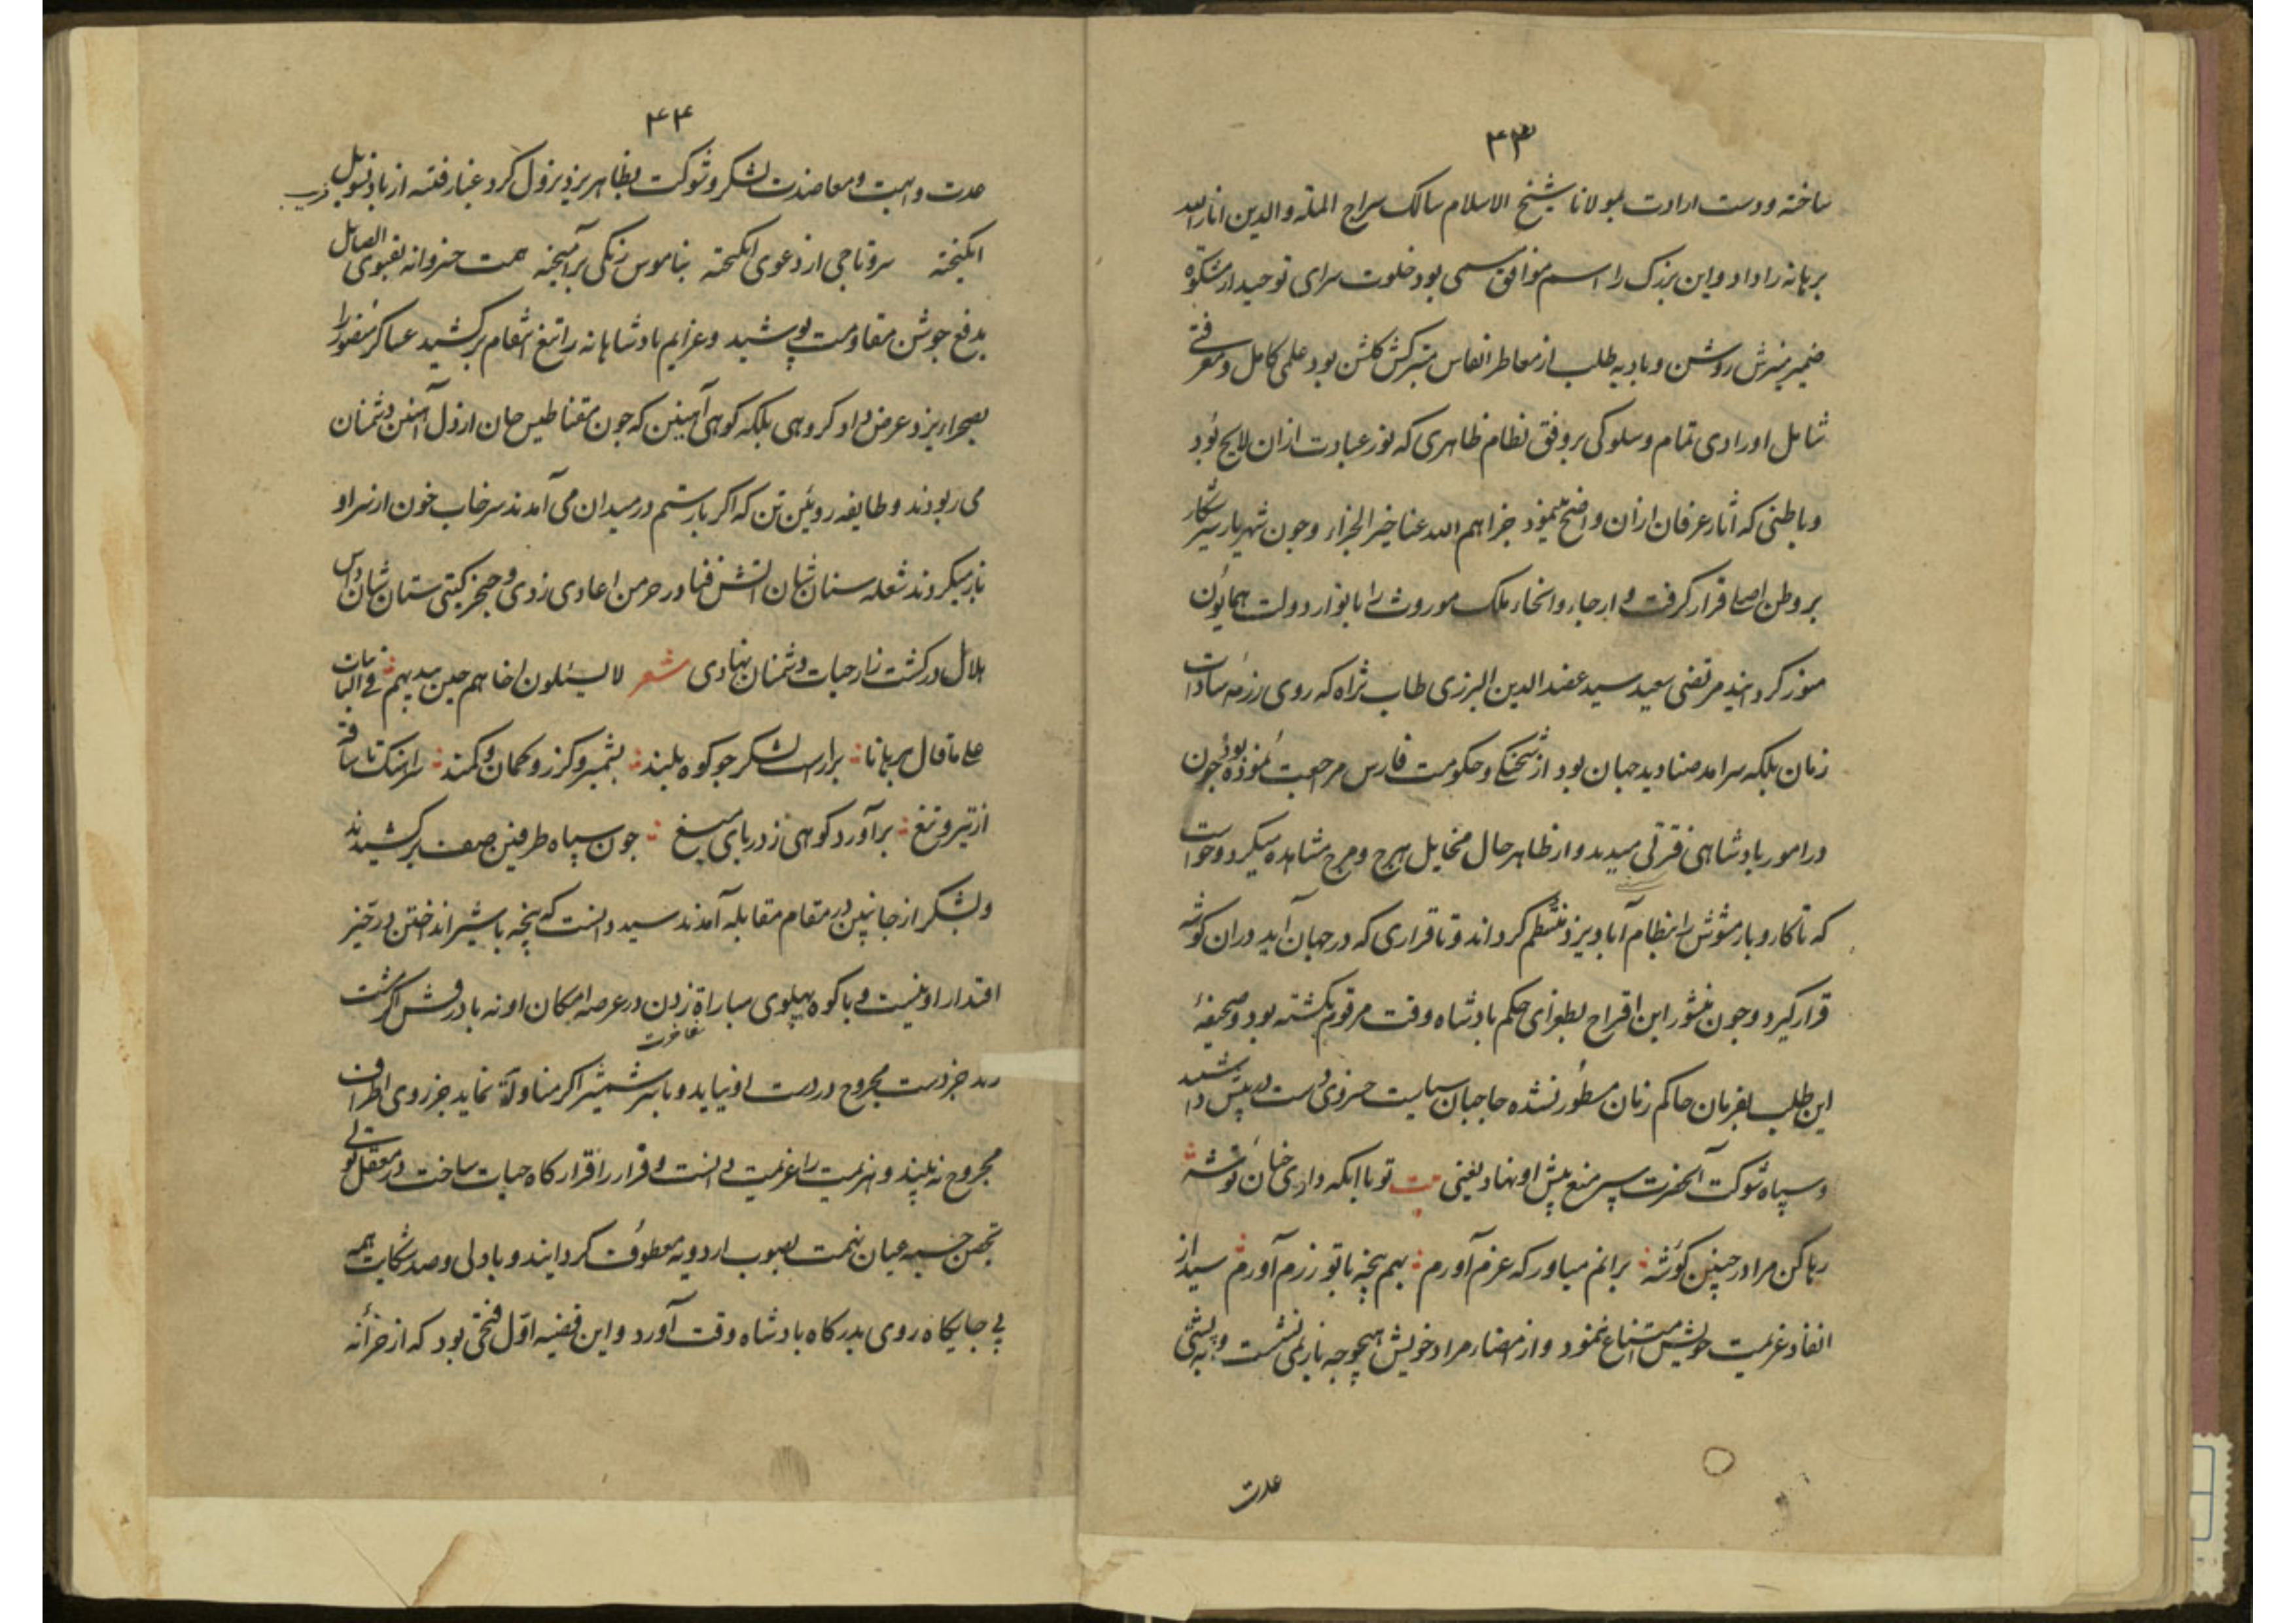 ۴۳
ساخته و دست ارادت بمولانا شیخ الاسلام سالک سراج الملة والدین انار الله
برهانه را داد و این بزرک را اسم موافق مسمی بود خلوت سرای توحید از مشکوة
ضمیر منیرش روشن و بادیه طلب از معاطر انفاس متبرکش کلشن بود علمی کامل و معرفتی
شامل اورادی تمام و سلوکی بر وفق نظام ظاهری که نور عبادت ازان لایح بود
و باطنی که آثار عرفان ازان واضح مینمود جزاهم الله عنا خیر الجزاء و چون شهریار شیر شکار
بر وطن اصلی قرار کرفت و ارجاء و انحاء ملک موروث را بانوار دولت همایون
منور کردانید مرتضی سعید سید عضد الدین الیزدی طاب ثراه که روی رزمه سادات
زمان بلکه سرامد صنادید جهان بود از شحنکی و حکومت فارس مرجعت نموده بود چون
در امور پادشاهی فترتی میدید و از ظاهر حال مخایل هرج و مرج مشاهده میکرد و خواست
که تا کار و بار مشوش را بنظام آباد یزد منتظم کرداند و تا قراری که در جهان آید در ان کوشه
قرار کیرد و چون منشور این اقتراح بطغرای حکم پادشاه وقت مرقوم نکشته بود و صحیفهٔ
این طلب بفرمان حاکم زمان مسطور نشده حاجبان سیاست خسروی دست در پیش داشتند
و سپاه شوکت آنحضرت سپر منع پیش او نهاد یعنی بیت تو با انکه داری چنان توشهٔ
رها کن مرا در چنین کوشهٔ برانم میاور که عزم آورم بهم پنجه با تو رزم آورم سید از
انفاد عزیمت خویش امتناع ننمود و از مضمار مراد خویش بهیچوجه باز نمی نشست و به پشتی
عدت
۴۴
عدت و اهبت و معاضدت لشکر و شوکت بظاهر یزد نزول کرد غبار فتنه از باد تسویل
انکیخته سر و تاجی از دعوی انکیخته بناموس رنکی برآمیخته همت خسروانه بفتوی الصایل
یدفع جوشن مقاومت پوشید و عزایم پادشاهانه را تیغ انتقام برکشید عساکر منصور را
بصحراء یزد عرض داد کروهی بلکه کوهی آهنین که چون مقناطیس جان از دل آهنین دشمنان
می ربودند و طایفه روئین تن که اکر با رستم در میدان می آمدند سرخاب خون از سر او
باز میکردند شعله سنان شان آتش فنا در خرمن اعادی زدی و خنجر کیتی ستان شان داس
هلال در کشت زار حیات دشمنان نهادی شعر لا یسئلون اخاهم حین یندبهم فی النایبات
علی ما قال برهانا براراست لشکر چو کوه بلند بشمشیر و کرز و کمان و کمند
از تیر و تیغ برآورد کوهی ز دریای میغ چون سپاه طرفین صف برکشیدند
و لشکر از جانبین در مقام مقابله آمدند سید دانست که پنجه با شیر انداختن در حیز
اقتدار او نیست و با کوه پهلوی مباراة زدن در عرصه امکان او نه با درفش اکر مشت
زند جز دست مجروح در دست او نیاید و با سر شمشیر اکر مناوله نماید جز روی اطراف
مجروح نه بیند و هزیمت را غنیمت دانست و فرار را قرار کاه حیات ساخت در معقل تولی
تحصن جسته عنان نهمت بصوب اردویه معطوف کردانید و با دلی و صد شکایت همه
بی جایکاه روی بدرکاه پادشاه وقت آورد و این قضیه اول فتحی بود که از خزانه